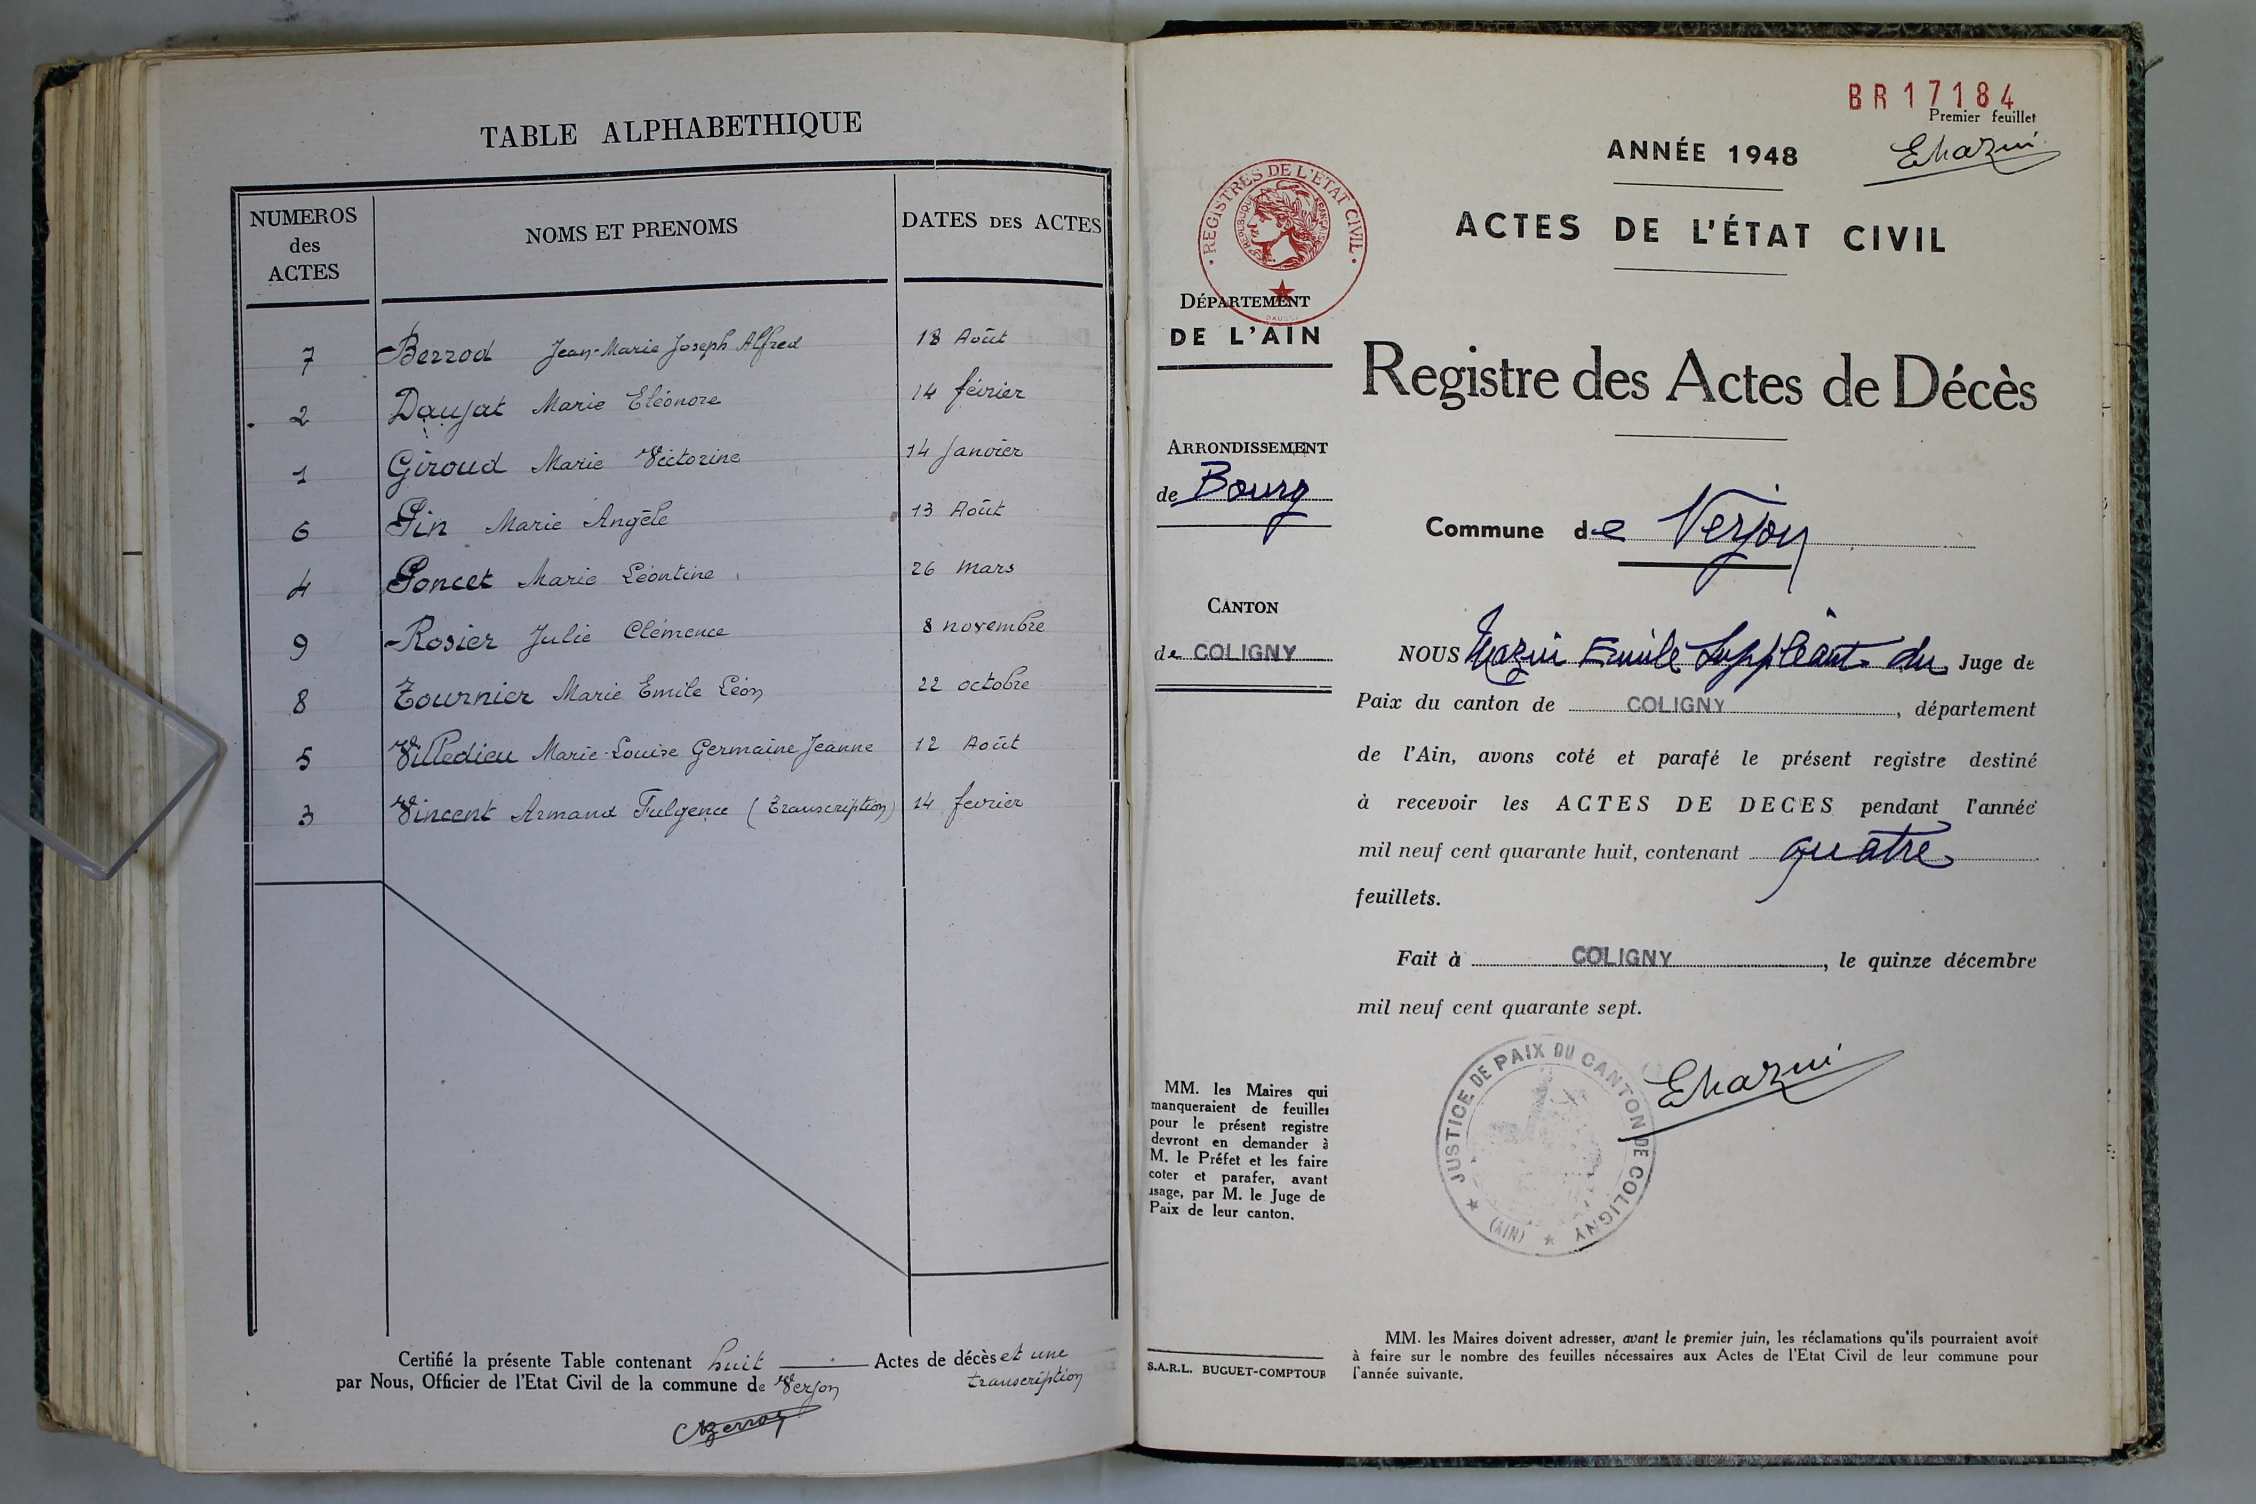 TABLE ALPHABETHIQUE
NUMEROS des ACTES
NOMS ET PRENOMS
DATES DES ACTES
7 Berrod Jean-Marie Joseph Alfred 18 Août
2 Daujat Marie Eléonore 14 février
1 Giroud Marie Victorine 14 Janvier
6 Pin Marie Angèle 13 Août
4 Poncet Marie Léontine 26 mars
9 Rosier Julie Clémence 8 novembre
8 Tournier Marie Emile Léon 22 octobre
5 Villedieu Marie-Louise Germaine Jeanne 12 Août
3 Vincent Armand Fulgence (Transcription) 14 fevrier
Certifié la présente Table contenant huit Actes de décès et une
par Nous, Officier de l'Etat Civil de la commune de Verjon transcription
BR17184
Premier feuillet
ANNÉE 1948
ACTES DE L'ÉTAT CIVIL
REGISTRES DE L'ÉTAT CIVIL
RÉPUBLIQUE FRANÇAISE
DÉPARTEMENT
DE L'AIN
Registre des Actes de Décès
ARRONDISSEMENT
de Bourg
Commune de Verjon
CANTON
de COLIGNY
NOUS Mazui Emile Suppléant du Juge de
Paix du canton de COLIGNY, département
de l'Ain, avons coté et parafé le présent registre destiné
à recevoir les ACTES DE DECES pendant l'année
mil neuf cent quarante huit, contenant quatre
feuillets.
Fait à COLIGNY, le quinze décembre
mil neuf cent quarante sept.
JUSTICE DE PAIX DU CANTON DE COLIGNY
(AIN)
EMazui
MM. les Maires qui
manqueraient de feuilles
pour le présent registre
devront en demander à
M. le Préfet et les faire
coter et parafer, avant
usage, par M. le Juge de
Paix de leur canton.
S.A.R.L. BUGUET-COMPTOUR
MM. les Maires doivent adresser, avant le premier juin, les réclamations qu'ils pourraient avoir
à faire sur le nombre des feuilles nécessaires aux Actes de l'Etat Civil de leur commune pour
l'année suivante.